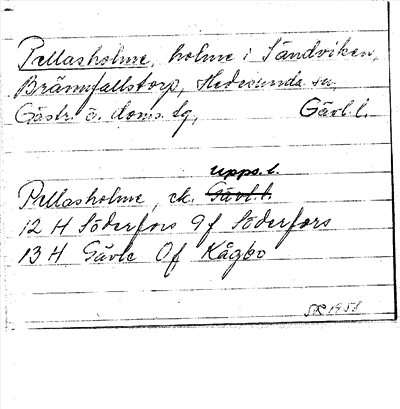 Pellasholme, holme i Sandviken,
Brännfallstorp, Hedesunda sn,
Gästr. ö. doms. tg, Gävl. l.
Upps. l.
Pellasholme, ek. Gävl. l.
12 H Söderfors 9f Söderfors
13 H Gävle 0f Kågbo
SR 1958